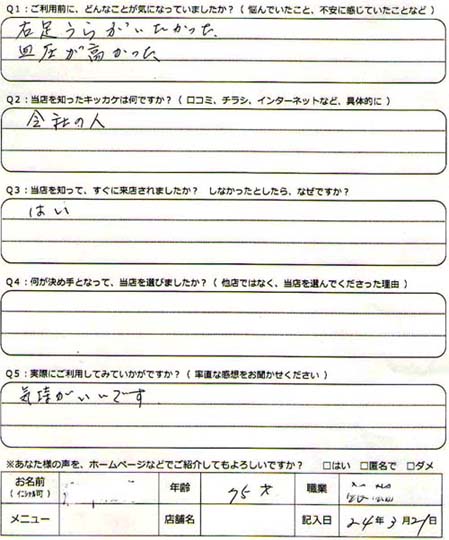 Q1：ご利用前に、どんなことが気になっていましたか？（悩んでいたこと、不安に感じていたことなど）
右足うらがいたかった
血圧が高かった
Q2：当店を知ったキッカケは何ですか？（口コミ、チラシ、インターネットなど、具体的に）
会社の人
Q3：当店を知って、すぐに来店されましたか？ しなかったとしたら、なぜですか？
はい
Q4：何が決め手となって、当店を選びましたか？（他店ではなく、当店を選んでくださった理由）
Q5：実際にご利用してみていかがですか？（率直な感想をお聞かせください）
気持がいいです
※あなた様の声を、ホームページなどでご紹介してもよろしいですか？ □はい □匿名で □ダメ
お名前 年齢 75才 職業
（イニシャル可）
メニュー 店舗名 記入日 24年3月21日